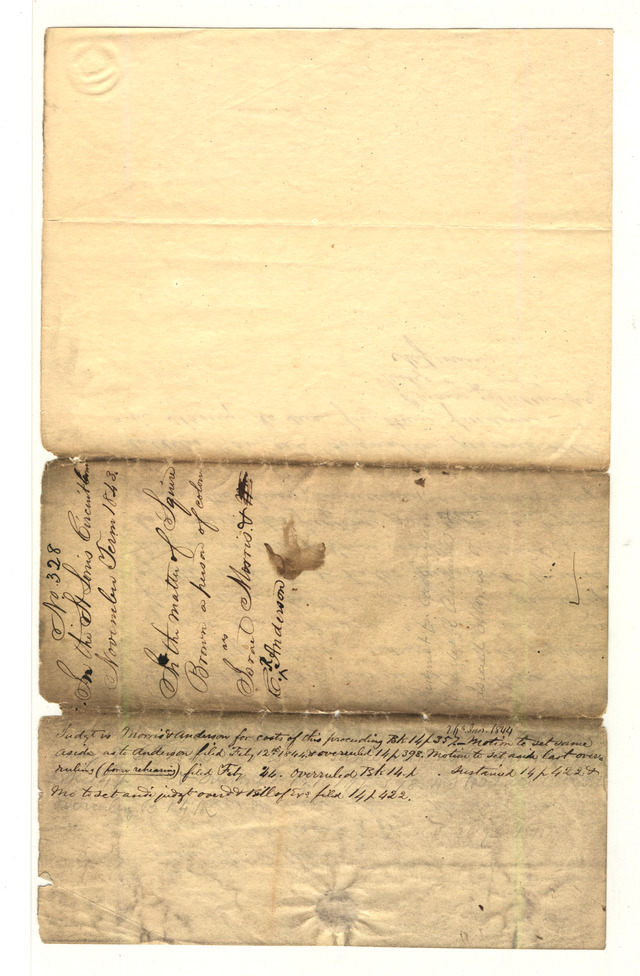 No 328
In the St Louis Circuit Court
November Term 1843.
In the matter of Squire
Brown a person of color
vs
Israel Morris &
C. R. Anderson
26th Jan. 1844
Judgt vs Morris & Anderson for costs of this proceeding Bk 14 p 35 Motion to set same
aside as to Anderson filed Feby 12th 1844 & overruled 14 p 398. Motion to set aside last over
ruling (for a rehearing) filed Feby 24. Overruled Bk 14 p . Sustained 14 p 422 &
Mo to set aside judgt overd & Bill of Exs filed 14 p 422.